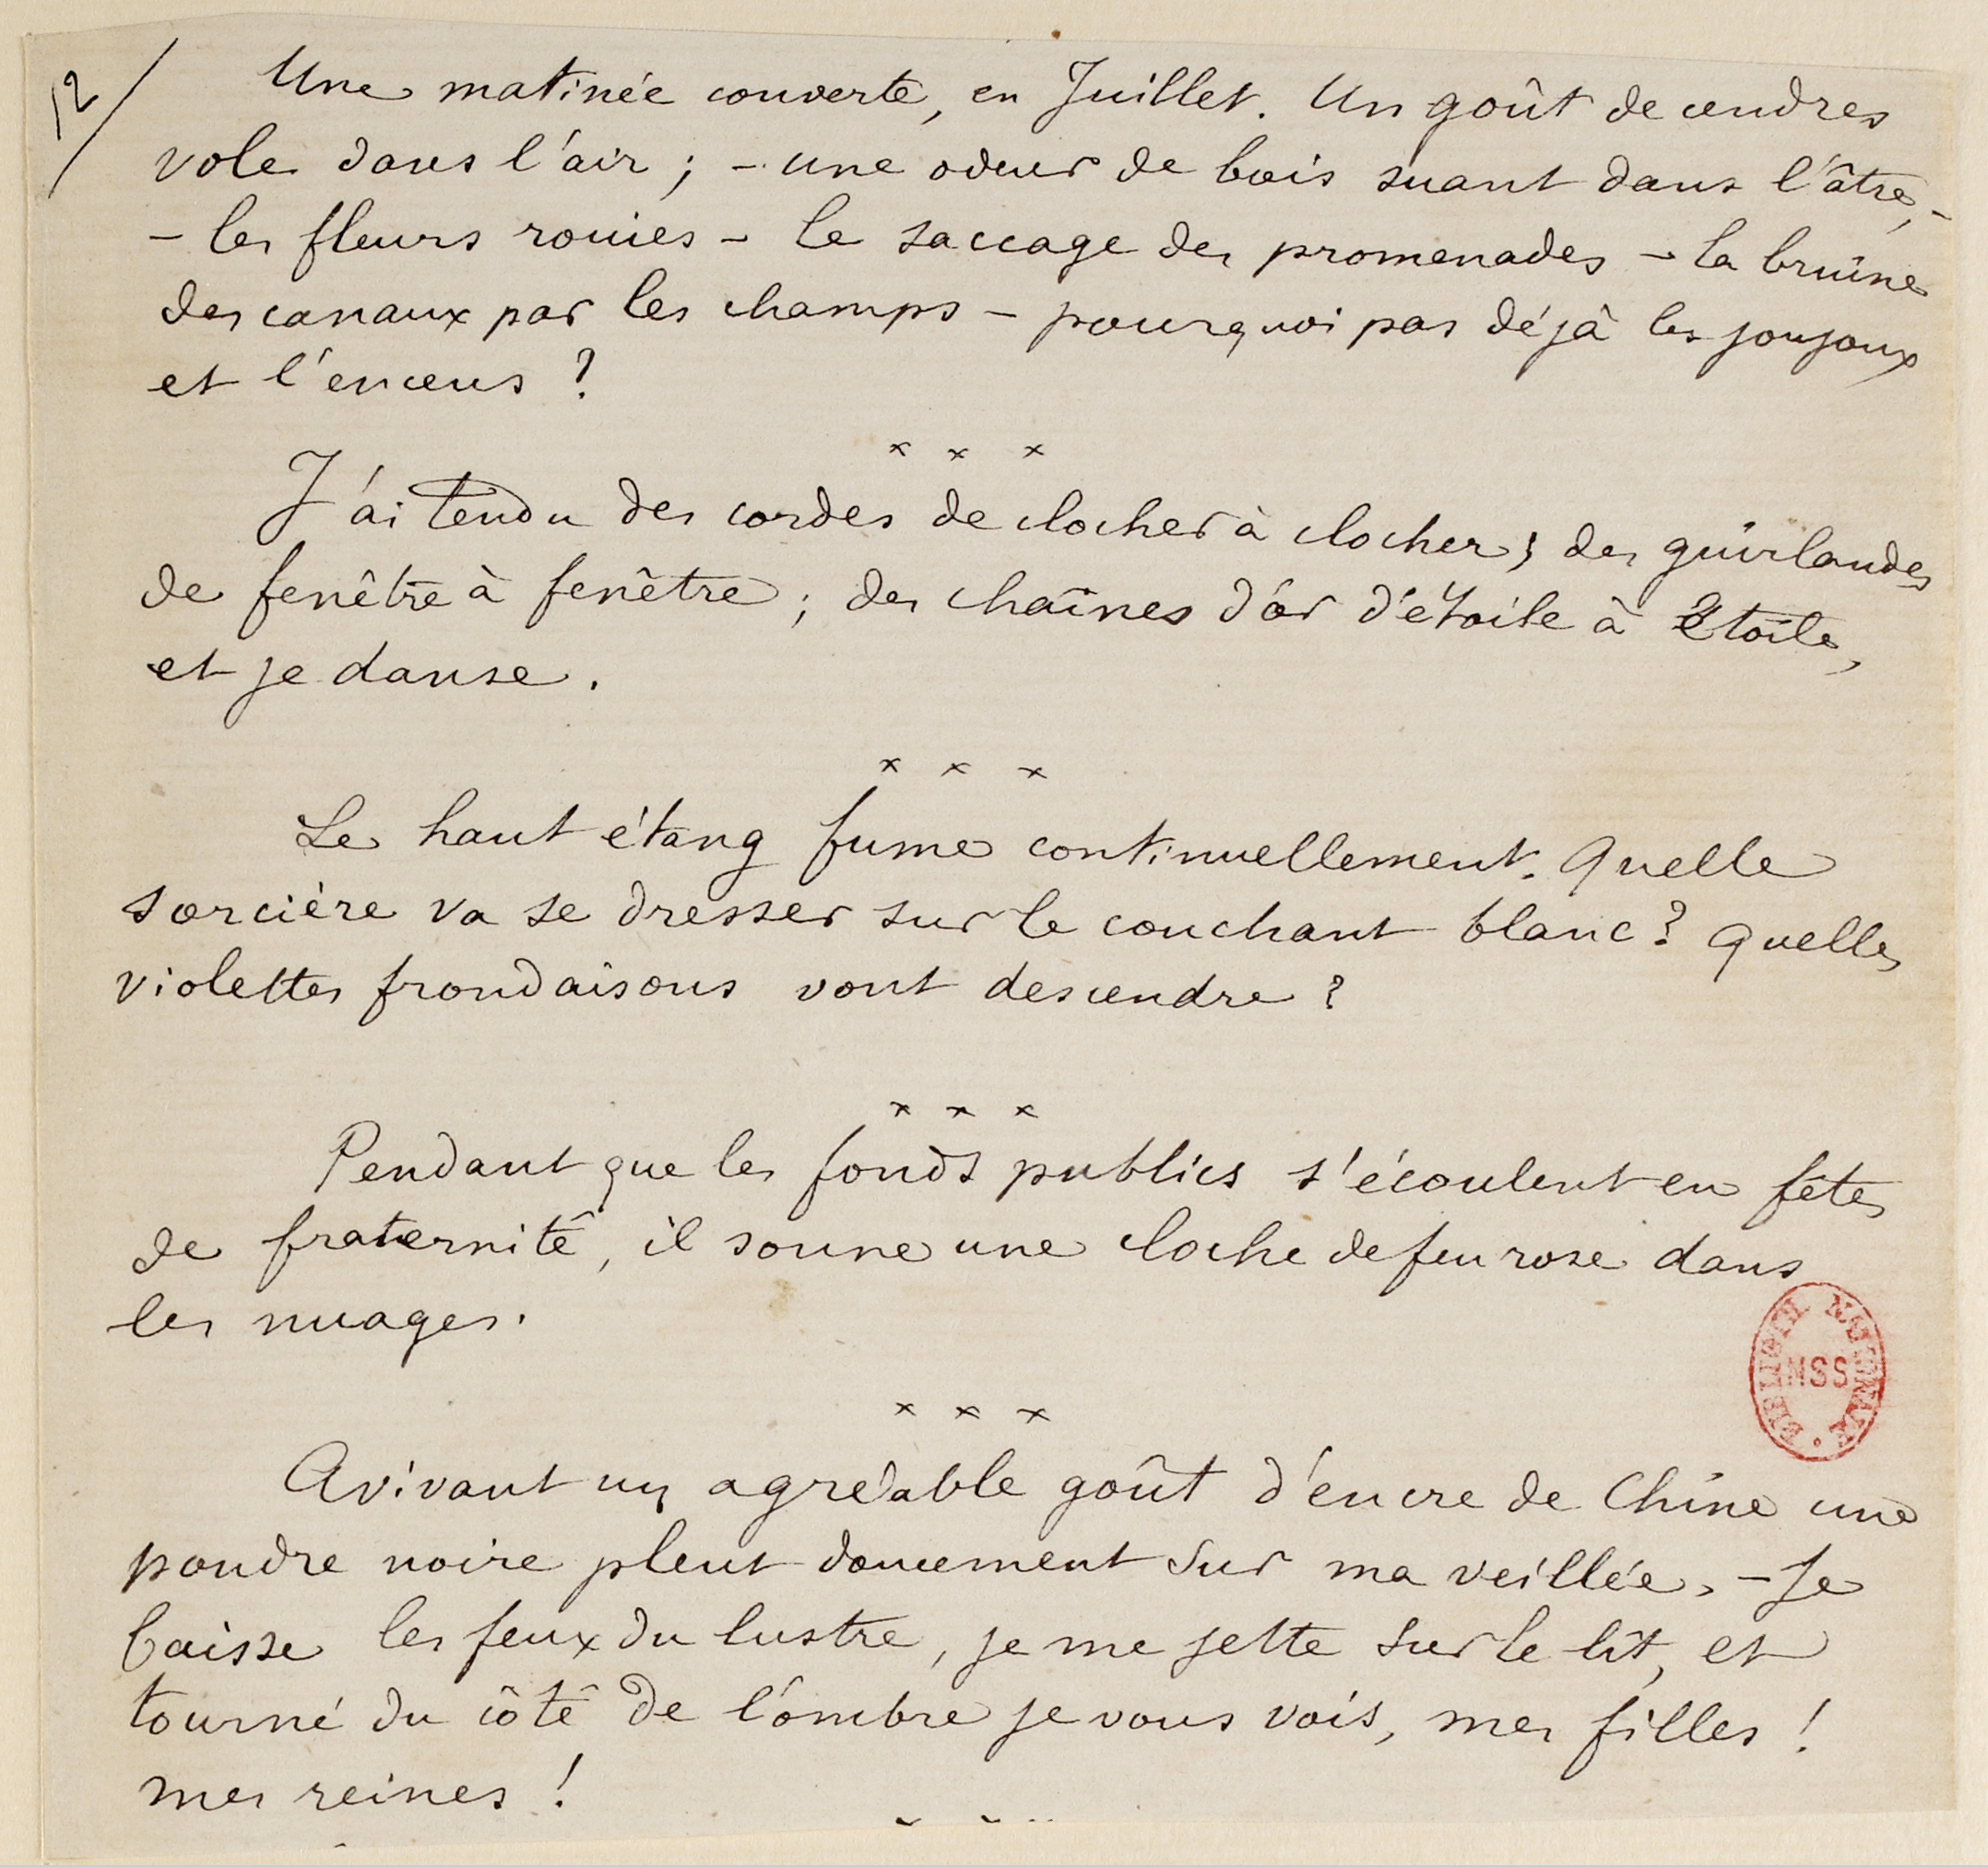 12/
Une matinée couverte, en Juillet. Un goût de cendres
vole dans l'air ; – une odeur de bois suant dans l'âtre, –
– les fleurs rouies – le saccage des promenades – la bruine
des canaux par les champs – pourquoi pas déjà les joujoux
et l'encens ?
x x x
J'ai tendu des cordes de clocher à clocher ; des guirlandes
de fenêtre à fenêtre ; des chaînes d'or d'étoile à étoile,
et je danse.
x x x
Le haut étang fume continuellement. Quelle
sorcière va se dresser sur le couchant blanc ? Quelles
violettes frondaisons vont descendre ?
x x x
Pendant que les fonds publics s'écoulent en fêtes
de fraternité, il sonne une cloche de feu rose dans
les nuages.
x x x
Avivant un agréable goût d'encre de Chine une
poudre noire pleut doucement sur ma veillée, – Je
baisse les feux du lustre, je me jette sur le lit, et
tourné du côté de l'ombre je vous vois, mes filles !
mes reines !
MSS